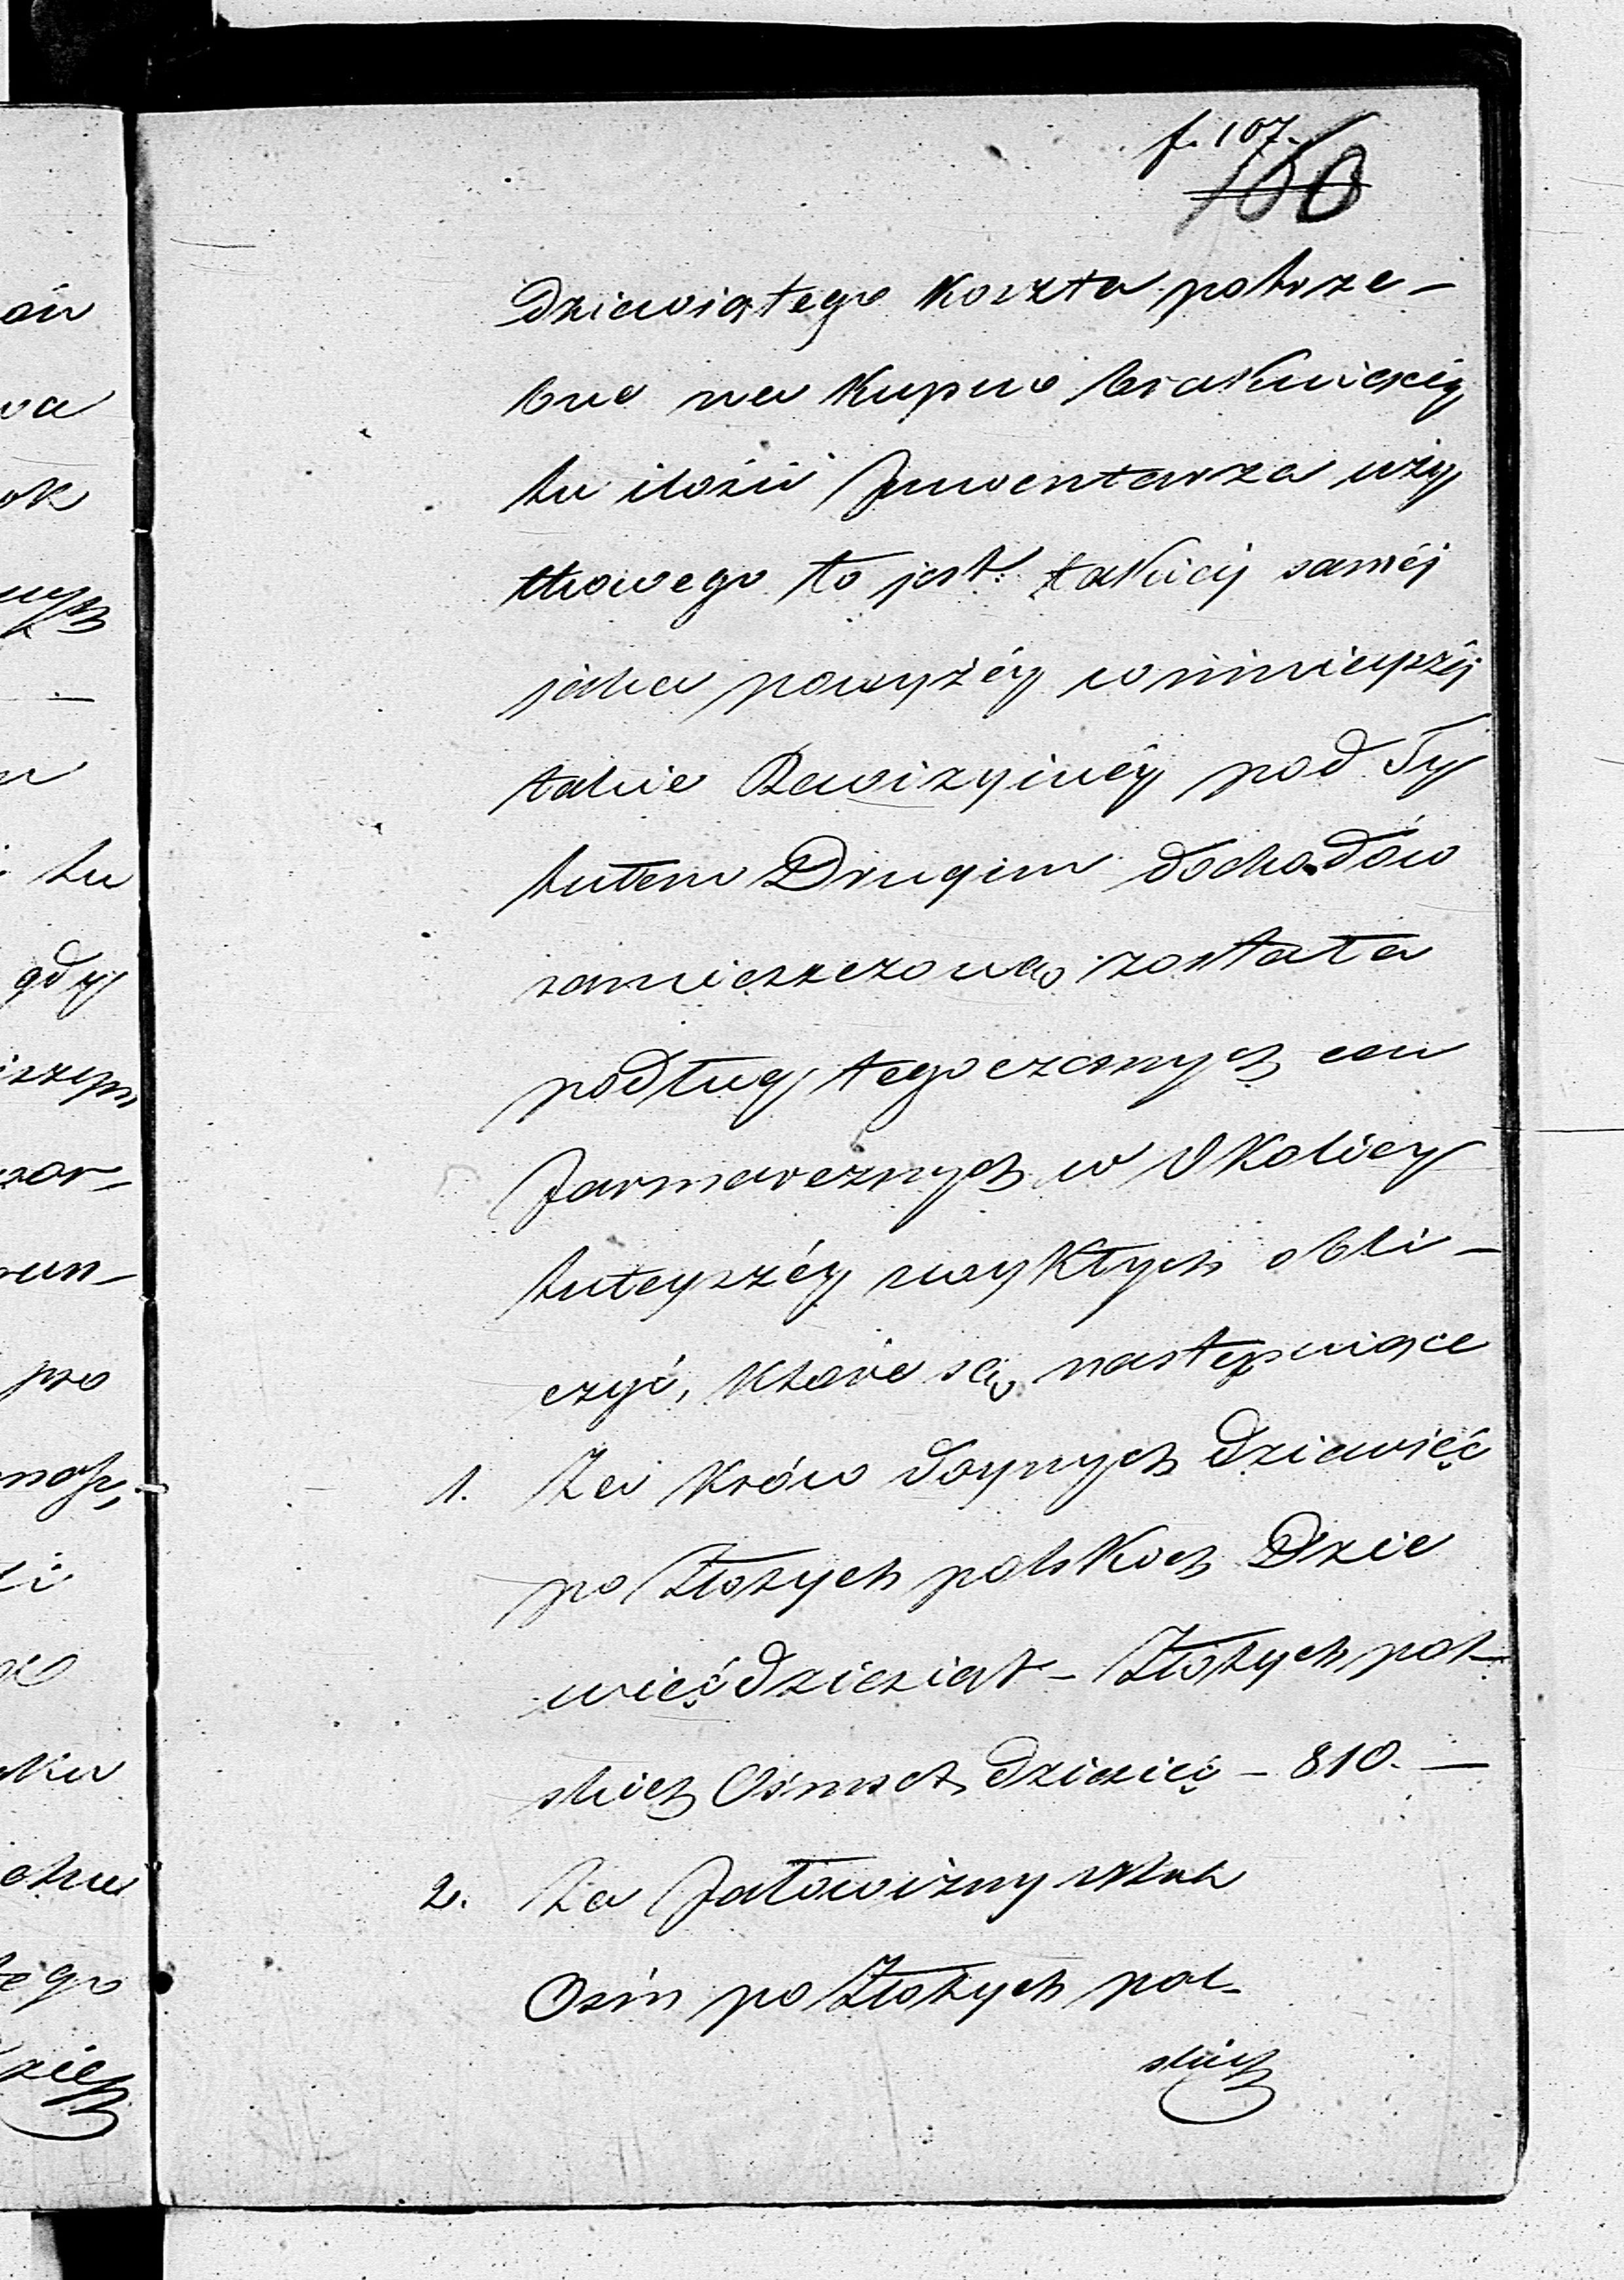 f. 107.
160
dziewiątego koszta potrze-
bne na kupno brakuiącéy
tu ilości Jnwentarza uży
tkowego to jest: takiéj saméj
jaka powyżéy w ninieyszéj
także Rewizyinéy pod Ty
tułem Drugim dochodów
zamieszczoną została
podług tegoczesnych cen
Jarmarcznych w Okolicy
tuteyszéy zwykłych obli-
czyć, które są następuiące
1. Za krów doynych dziewięć
po Złotych polskich Dzie
więćdziesiąt - Złotych pol-
skich Ośmset dziesięć - 810. -
2. Za Jałowizny sztuk
Ośm po Złotych pol-
skich